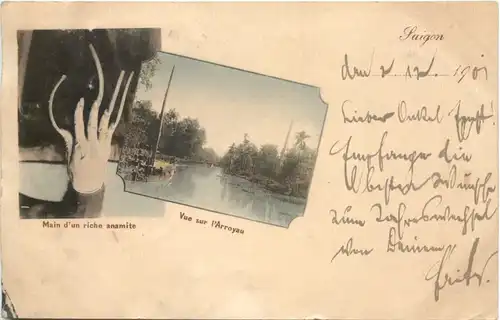 Saigon
den 2. 12. 1901
Lieber Onkel Ernst.
Empfange die
besten Wünsche
zum Jahreswechsel
von Deinem
Fritz.
Main d'un riche anamite
Vue sur l'Arroyau